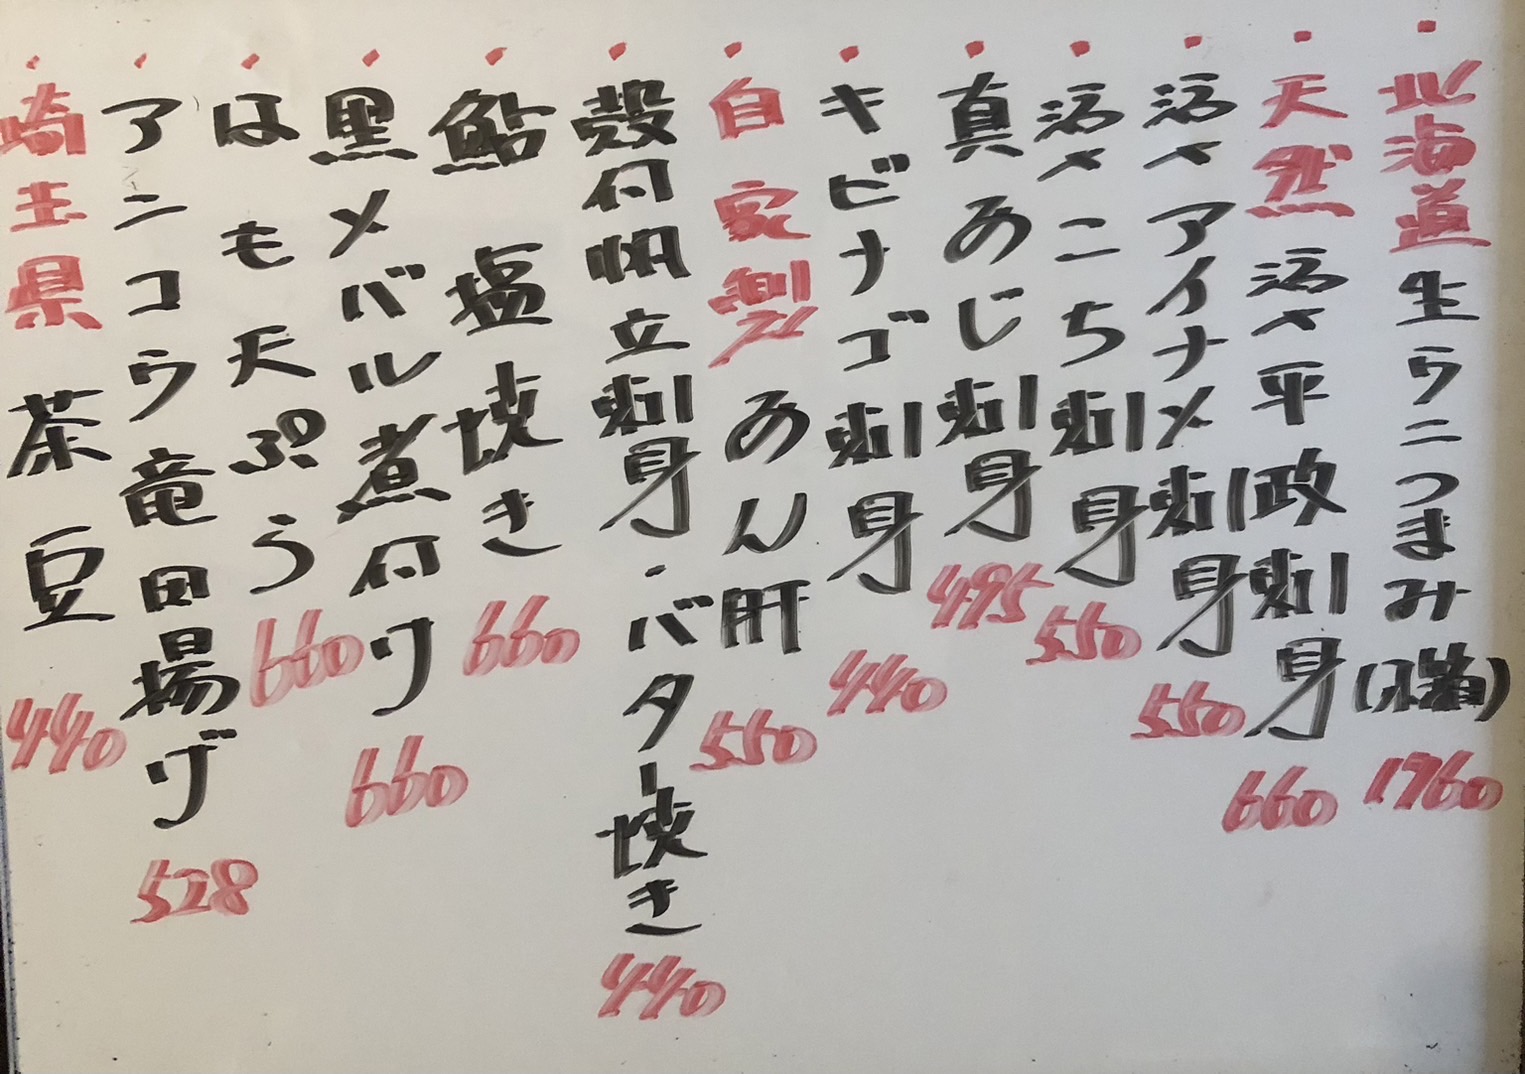 ・北海道生ウニつまみ(小箱)1960
・天然活〆平政刺身660
・活〆アイナメ刺身550
・活〆こち刺身550
・真あじ刺身495
・キビナゴ刺身440
・自家製あん肝550
・殻付帆立刺身・バター焼き440
・鮎塩焼き660
・黒メバル煮付け660
・はも天ぷら660
・アンコウ竜田揚げ528
・埼玉県茶豆440